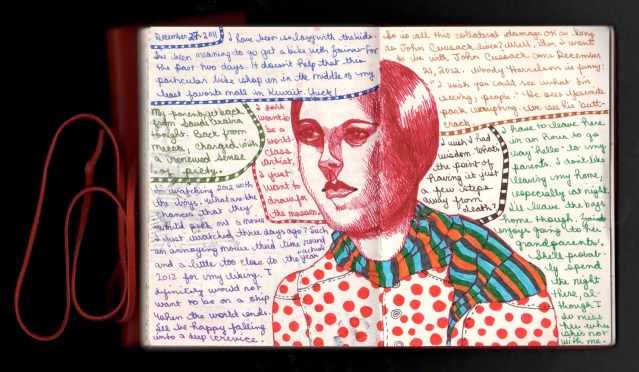 December 27, 2011
I have been so lazy with the kids.
I've been meaning to go get a bike with Zainab for
the past two days. It doesn't help that this
particular bike shop is in the middle of my
least favorite mall in Kuwait. Yuck!
My parents get back
from Saudi Arabia
tonight. Back from
Mecca, charged with
a renewed sense
of piety.
I don't
want to
be a
world-
class
artist,
I just
want to
draw for
the masses.
I'm watching 2012 with
the boys. What are the
chances that they
would pick out a movie
I just watched three days ago? Such
an annoying movie third time around
and a little too close to the actual year
2012 for my liking. I
definitely would not
want to be on a ship
when the world ends.
I'll be happy falling
into a deep crevice.
So is all this collateral damage OK as long
as John Cussack lives? Well, then I want
to be with John Cussack come December
21, 2012. Woody Harrelson is funny:
"I wish you could see what I'm
seeing, people." We see Yosemite
park erupting. We see his butt-
crack.
I wish I had
wisdom. What's
the point of
having it just
a few steps
away from
death?
I have to leave here
in an hour to go
say "hello" to my
parents. I don't like
leaving my home,
especially at night.
I'll leave the boys
home though.
enjoys going to her
grandparents.
She'll probab-
ly spend
the night
there, al-
though I
do miss
her when
she's not
with me.